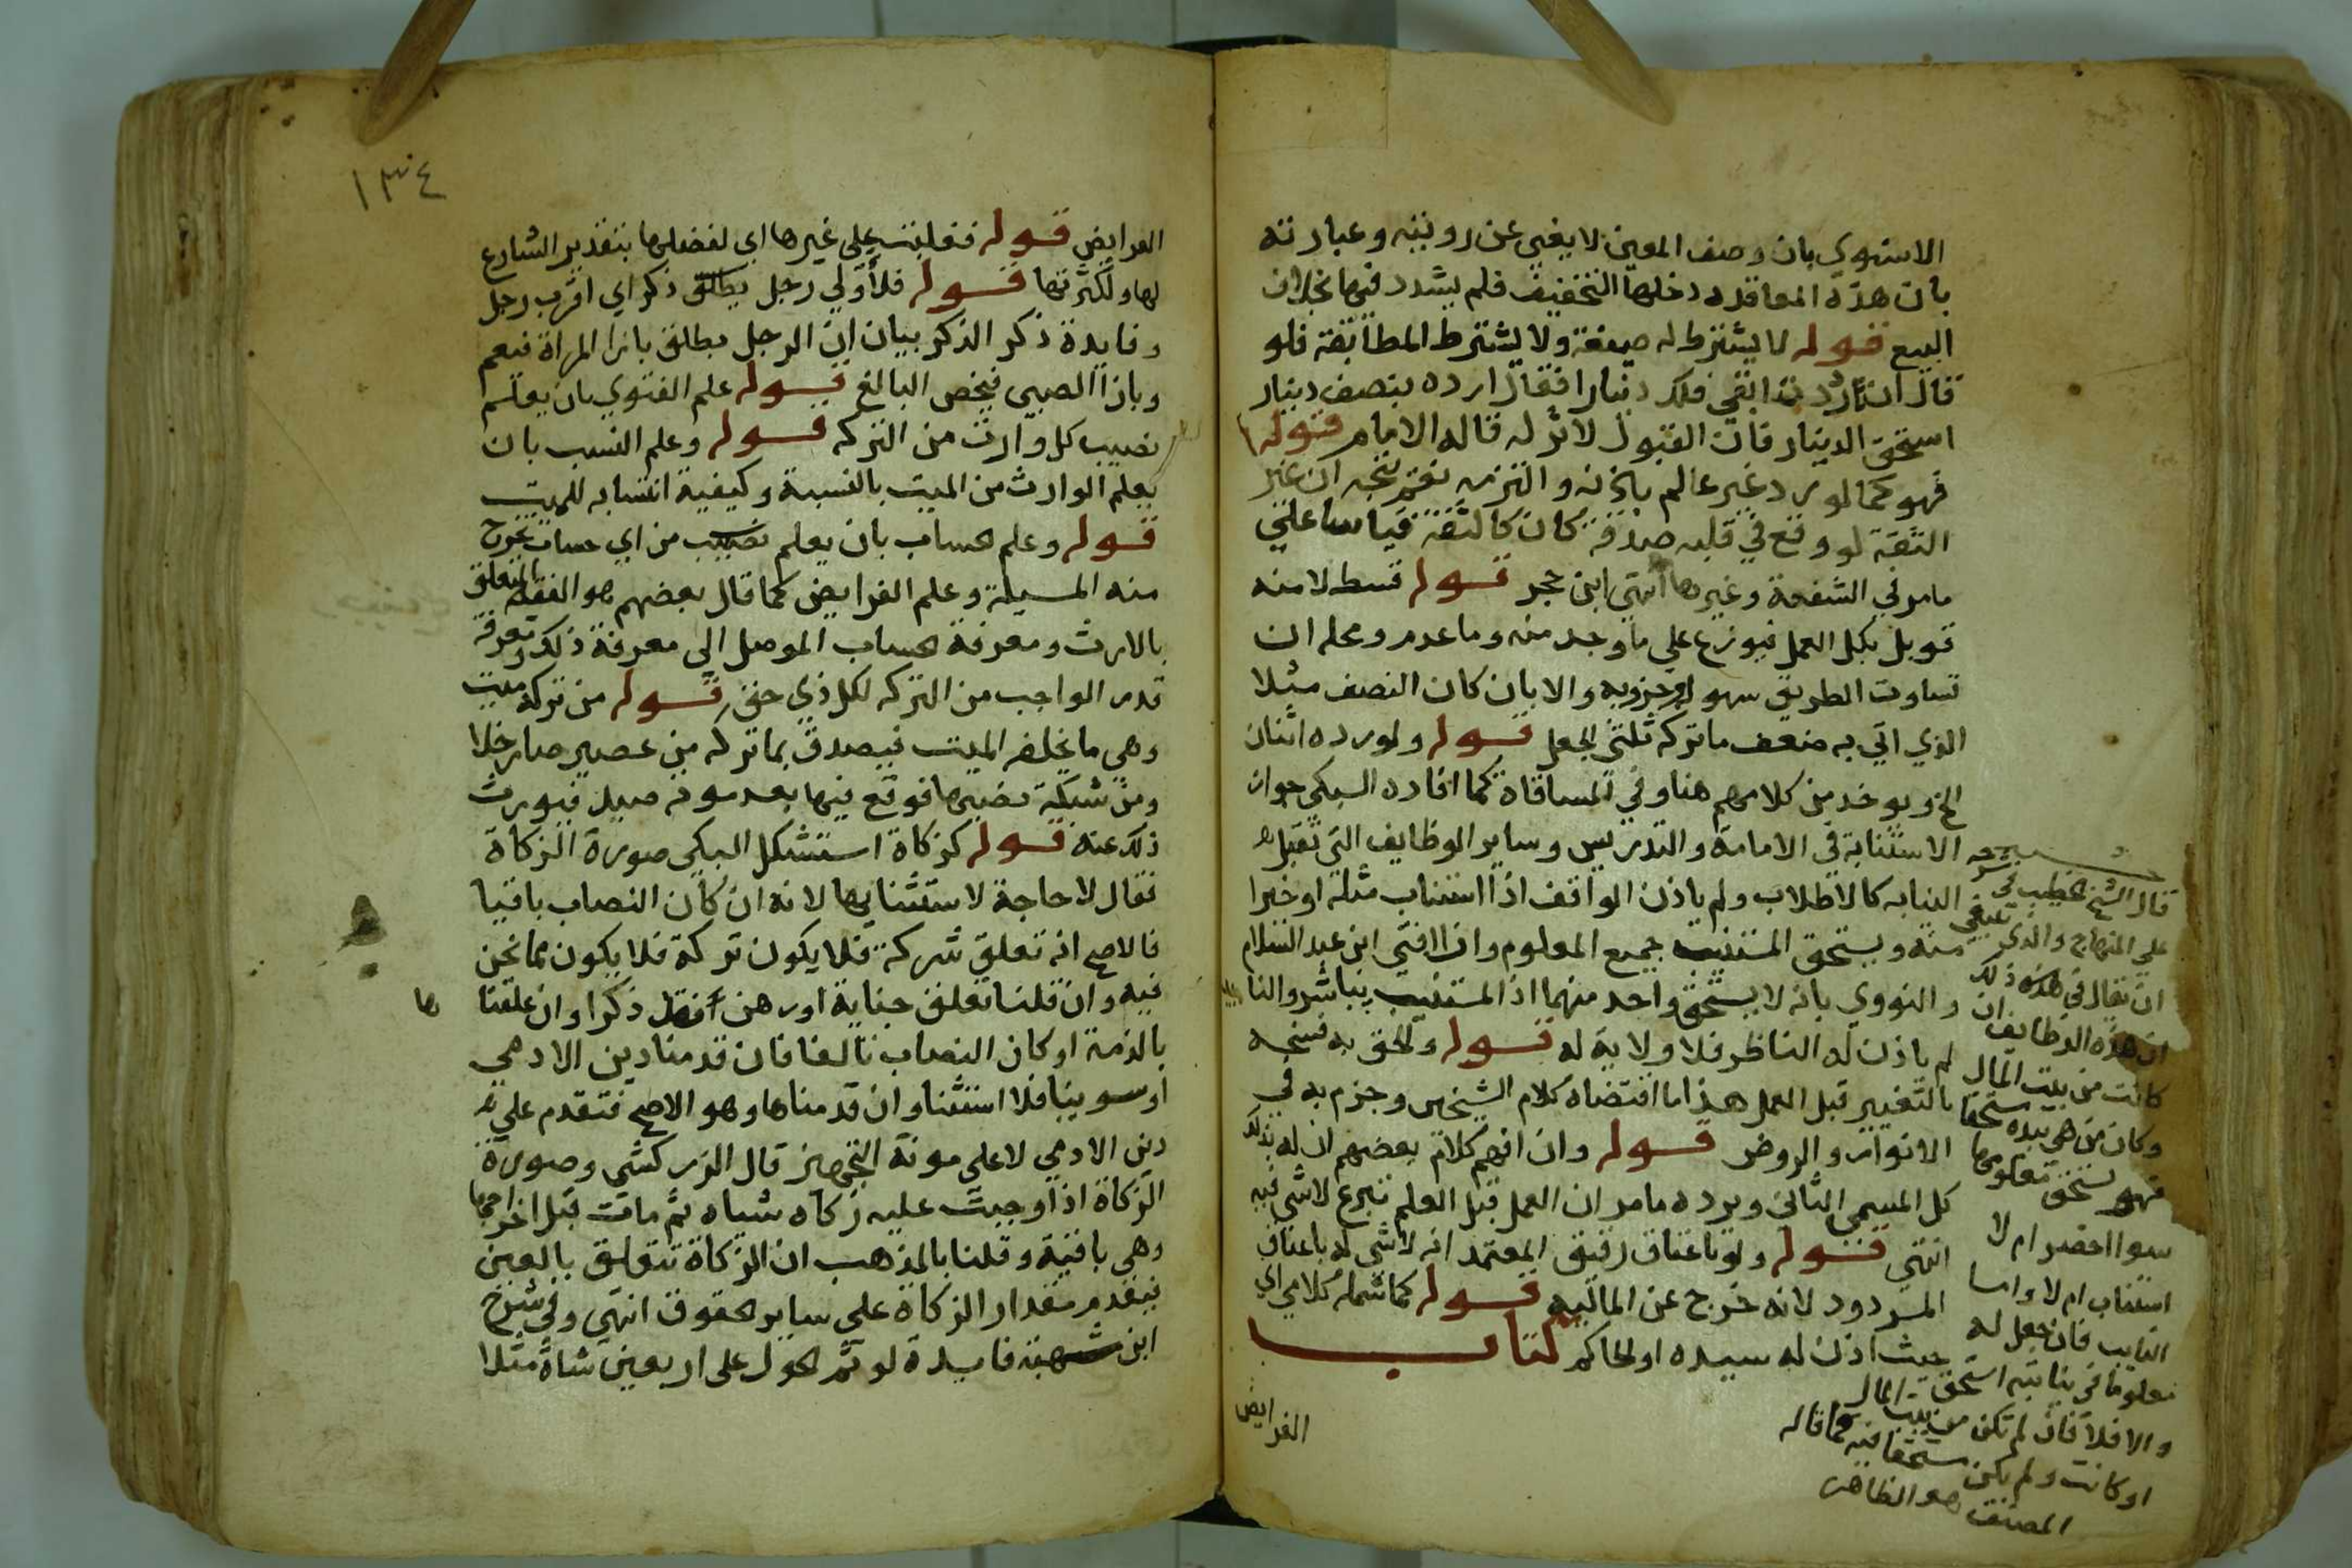 الاسنوي بان وصف المعين لا يغني عن رويته وعبارته
بان هذه المعاقده دخلها التخفيف فلم يشدد فيها بخلاف
البيع قوله لا يشترط له صيغة ولا يشترط المطابقة فلو
قال ان رددت ابقي فلك دينارا فقال ارده بنصف دينار
استحق الدينار فان القبول لا اثر له قاله الامام قوله
فهو كما لو رد غير عالم باذنه والتزمه نعم يتجه ان غير
الثقة لو وقع في قلبه صدقه كان كالثقة قياسا علي
ما مر في الشفعة وغيرها انتهي ابن حجر قوله قسط لا منه
قوبل بكل العمل فيوزع علي ما وجد منه وما عدم ومحله ان
تساوت الطريق سهولة وحزوبه والا بان كان النصف مثلا
الذي اتي به ضعف ما تركه ثلثي الجعل قوله ولو رده اثنان
الخ ويوخذ من كلامهم هنا وفي المساقاة كما افاده السبكي جواز
الاستنابة في الامامة والتدريس وساير الوظايف التي تقبل
النيابه كالاطلاب ولم ياذن الواقف اذا استناب مثله او خيرا
منه ويستحق المستنيب جميع المعلوم وان افتي ابن عبد السلام
والنووي بانه لا يستحق واحد منهما اذ المستنيب لم يباشر والنايب
لم ياذن له الناظر فلا ولاية له قوله ولحق به فسخه
بالتغيير قبل العمل هذا ما اقتضاه كلام الشيخين وجزم به في
الانوار والروض قوله وان افهم كلام بعضهم ان له بذلك
كل المسمي الثاني ويرده ما مر ان العمل قبل العلم تبرع لا شي فيه
انتهي قوله ولو باعتاق رقيق المعتمد انه لا شي له باعتاق
المردود لانه خرج عن المالية قوله كما شمله كلامي اي
حيث اذن له سيده او الحاكم كتاب
الفرايض
قال الشيخ الخطيب في شرحه
علي المنهاج والذي ينبغي
ان يقال في هذه ذلك ان
ان هذه الوظايف ان
كانت من بيت المال
وكان من هي بيده مستحقا
فهو يستحق معلومها
سوا احضر ام لا
استناب ام لا واما
النايب فان جعل له
معلوما في نيابته استحق
والا فلا فان لم تكن من بيت المال
او كانت ولم يكن مستحقا فيه كما قاله
المصنف هو الظاهر
١٣٤
الفرايض قوله فغلبت علي غيرها اي لفضلها بتقدير الشارع
لها ولكثرتها قوله فلأولي رجل يطلق ذكر اي اقرب رجل
وفايدة ذكر الذكر بيان ان الرجل يطلق بازا المراة فيعم
وبازا الصبي فيخص البالغ قوله علم الفتوي بان يعلم
نصيب كل وارث من التركه قوله وعلم النسب بان
يعلم الوارث من الميت بالنسبة وكيفية انتسابه للميت
قوله وعلم الحساب بان يعلم نصيب من اي حساب تخرج
منه المسيلة وعلم الفرايض كما قال بعضهم هو الفقه المتعلق
بالارث ومعرفة الحساب الموصل الي معرفة ذلك ومعرفة
قدر الواجب من التركه لكل ذي حق قوله من تركة ميت
وهي ما يخلفه الميت فيصدق بما تركه من عصير صار خلا
ومن شبكة نصبها فوقع فيها بعد موته صيد فيورث
ذلك عنه قوله كزكاة استشكل السبكي صورة الزكاة
فقال لا حاجة لاستثنايها لانه ان كان النصاب باقيا
فالاصح انه تعلق شركة فلا يكون تركة فلا يكون مما نحن
فيه وان قلنا تعلق جناية او رهن فقد ذكرا وان علقنا
ها
بالذمة او كان النصاب تالفا فان قدمنا دين الادمي
او سوينا فلا استثنا وان قدمناها وهو الاصح فتقدم علي
دين الادمي لا علي مونة التجهيز قال الزركشي وصورة
الزكاة اذا وجبت عليه زكاه شياه ثم مات قبل اخراجها
وهي باقية وقلنا بالمذهب ان الزكاة تتعلق بالعين
فيقدم مقدار الزكاة علي ساير الحقوق انتهي وفي شرح
ابن شهبة فايدة لو تم الحول علي اربعين شاة مثلا